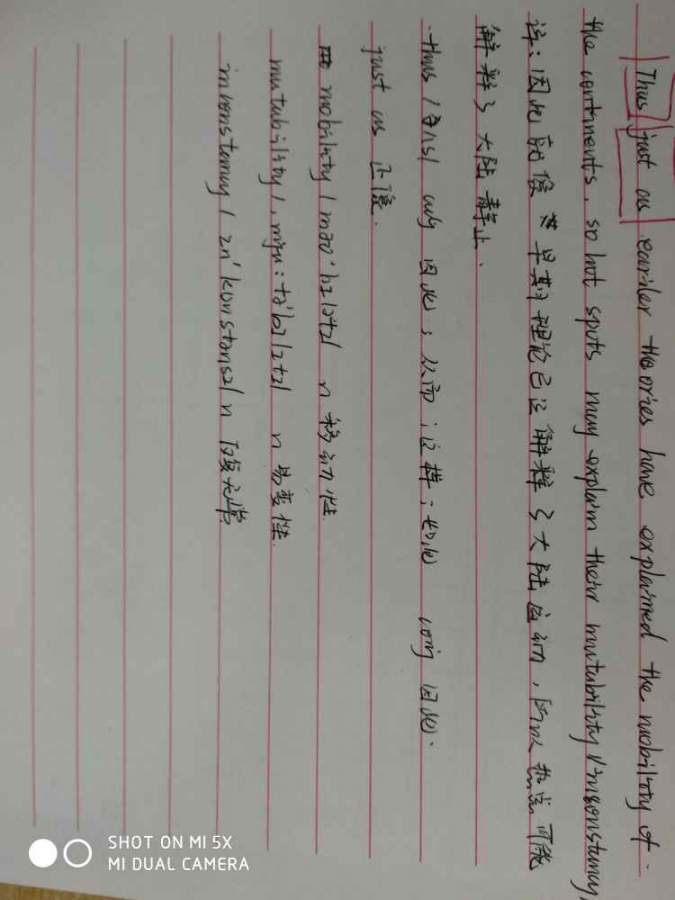 Thus just as eariler theories have explained the mobility of
the continents, so hot spots may explain their mutability (inconstancy)
译：因此就像 早期理论已经解释了大陆运动，所以热点可能
解释了大陆静止.
thus /ðʌs/ adv 因此；从而；这样；如此 conj 因此.
just as 正像.
mobility /məʊ'bɪlɪtɪ/ n 移动性
mutability /,mju:tə'bɪlɪtɪ/ n 易变性.
inconstancy / ɪn'kɒnstənsɪ/ n 反复无常
SHOT ON MI 5X
MI DUAL CAMERA